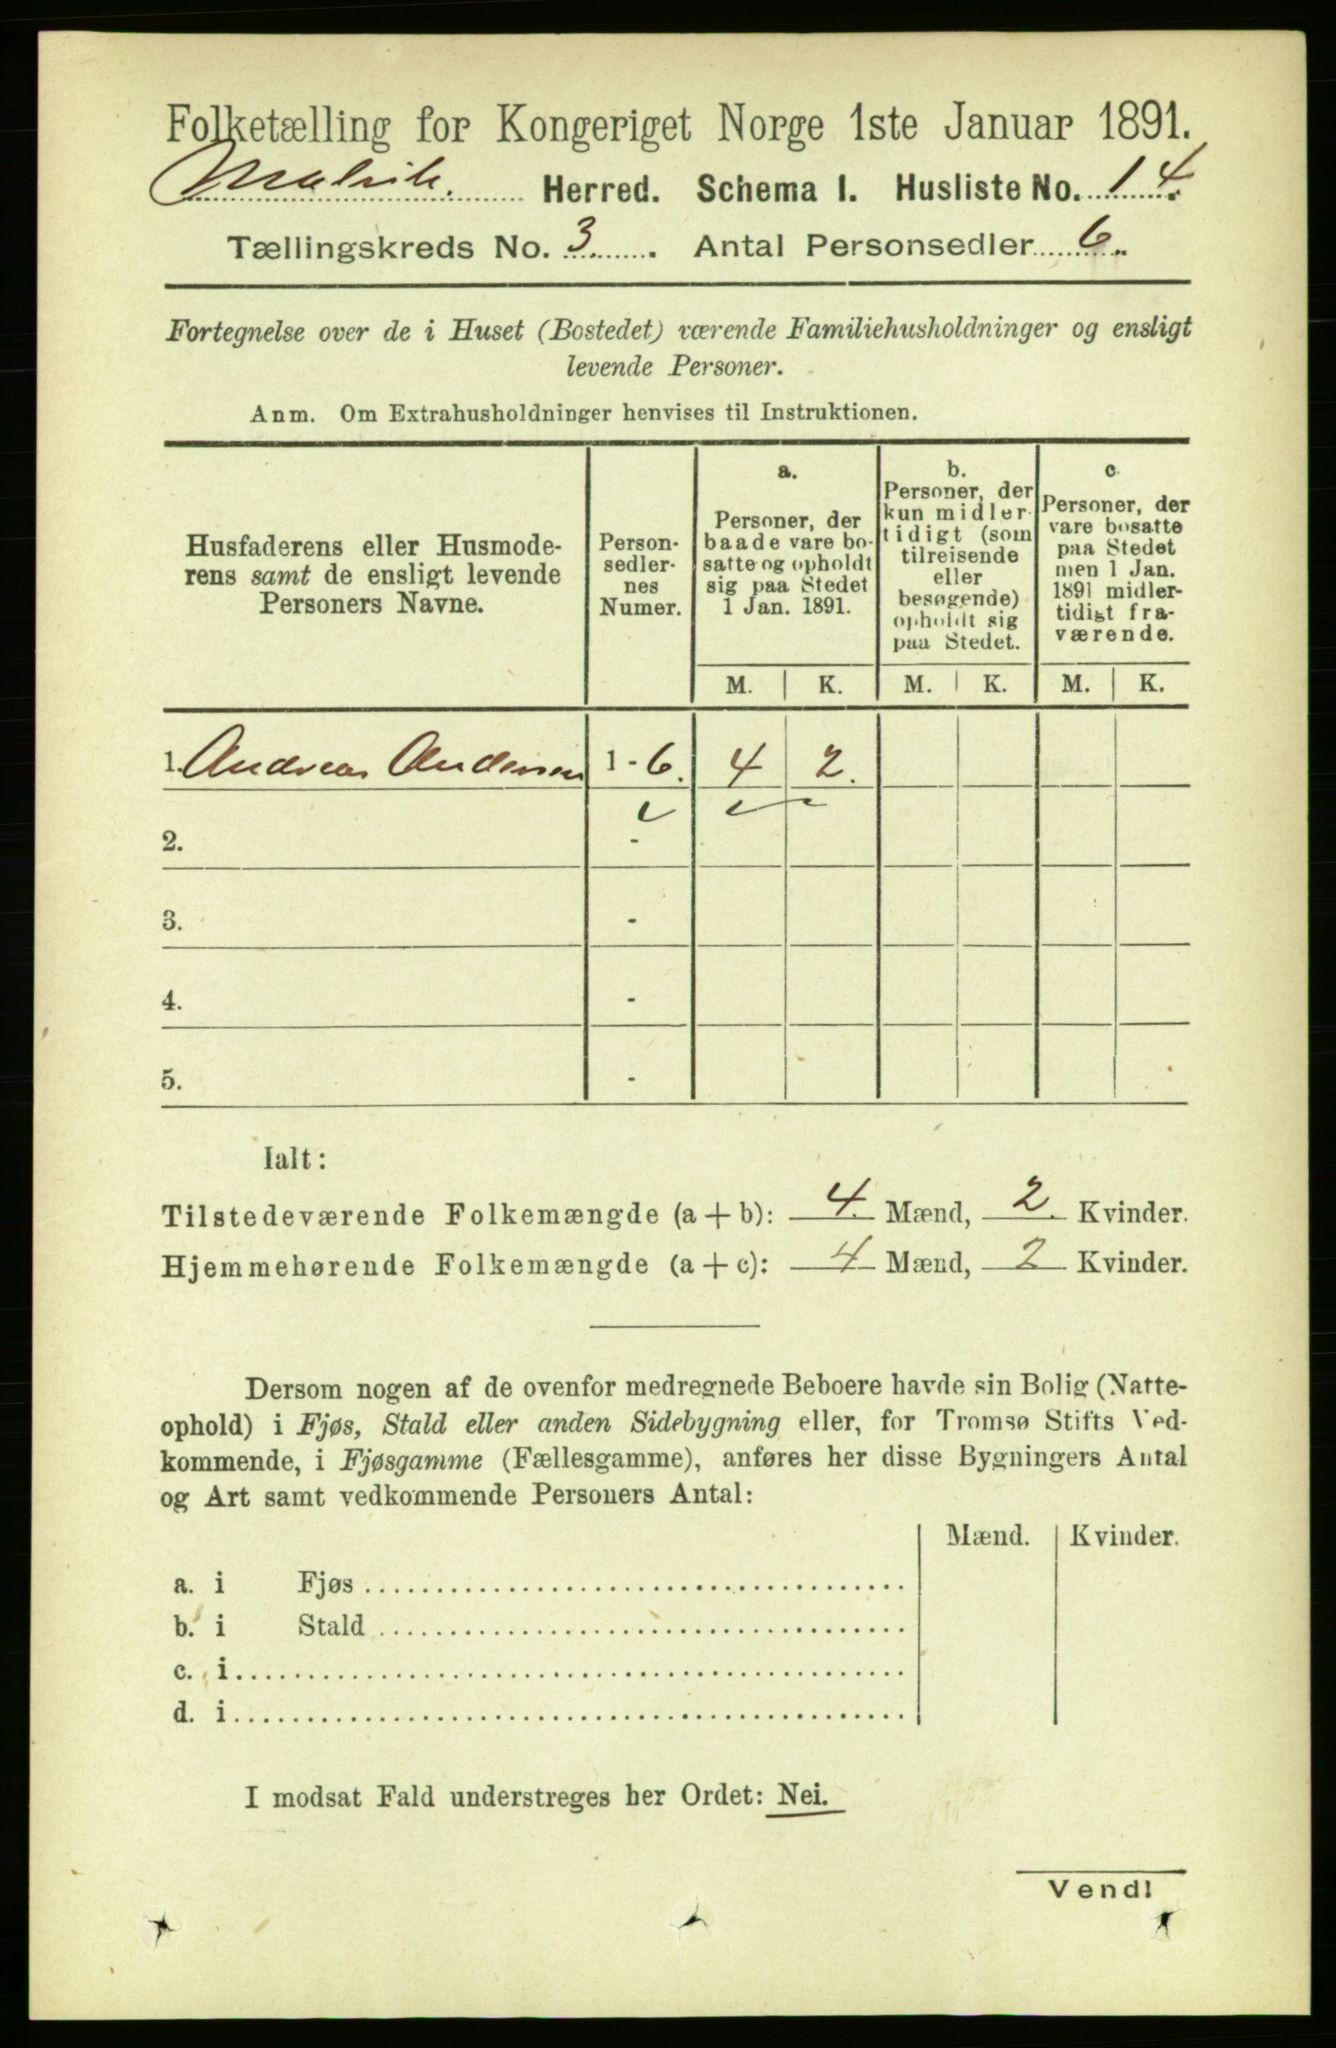 Folketælling for Kongeriget Norge 1ste Januar 1891.
Malvik. Herred. Schema I. Husliste No. 14.
Tællingskreds No. 3. Antal Personsedler 6.
Fortegnelse over de i Huset (Bostedet) værende Familiehusholdninger og ensligt
levende Personer.
Anm. Om Extrahusholdninger henvises til Instruktionen.
Husfaderens eller Husmode-
rens samt de ensligt levende
Personers Navne.
Person-
sedler-
nes
Numer.
a.
Personer, der
baade vare bo-
satte og opholdt
sig paa Stedet
1 Jan. 1891.
b.
Personer, der
kun midler-
tidigt (som
tilreisende
eller
besøgende)
opholdt sig
paa Stedet.
c.
Personer, der
vare bosatte
paa Stedet
men 1 Jan.
1891 midler-
tidigt fra-
værende.
M. K. M. K. M. K.
1. Andreas Andersen 1 - 6. 4 2.
2. -
3. -
4. -
5. -
Ialt:
Tilstedeværende Folkemængde (a + b): 4. Mænd, 2. Kvinder.
Hjemmehørende Folkemængde (a + c): 4 Mænd, 2 Kvinder.
Dersom nogen af de ovenfor medregnede Beboere havde sin Bolig (Natte-
ophold) i Fjøs, Stald eller anden Sidebygning eller, for Tromsø Stifts Ved-
kommende, i Fjøsgamme (Fællesgamme), anføres her disse Bygningers Antal
og Art samt vedkommende Personers Antal:
Mænd. Kvinder.
a. i Fjøs
b. i Stald
c. i
d. i
I modsat Fald understreges her Ordet: Nei.
Vend!